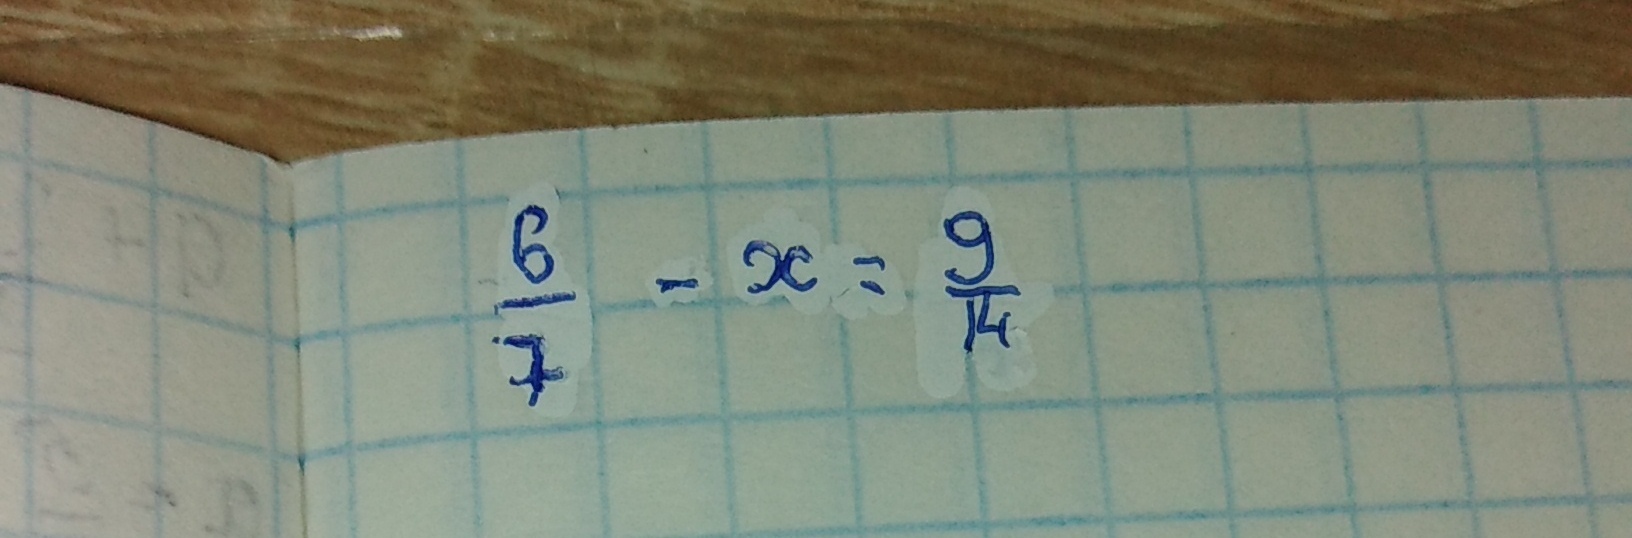 6/7 - x = 9/14